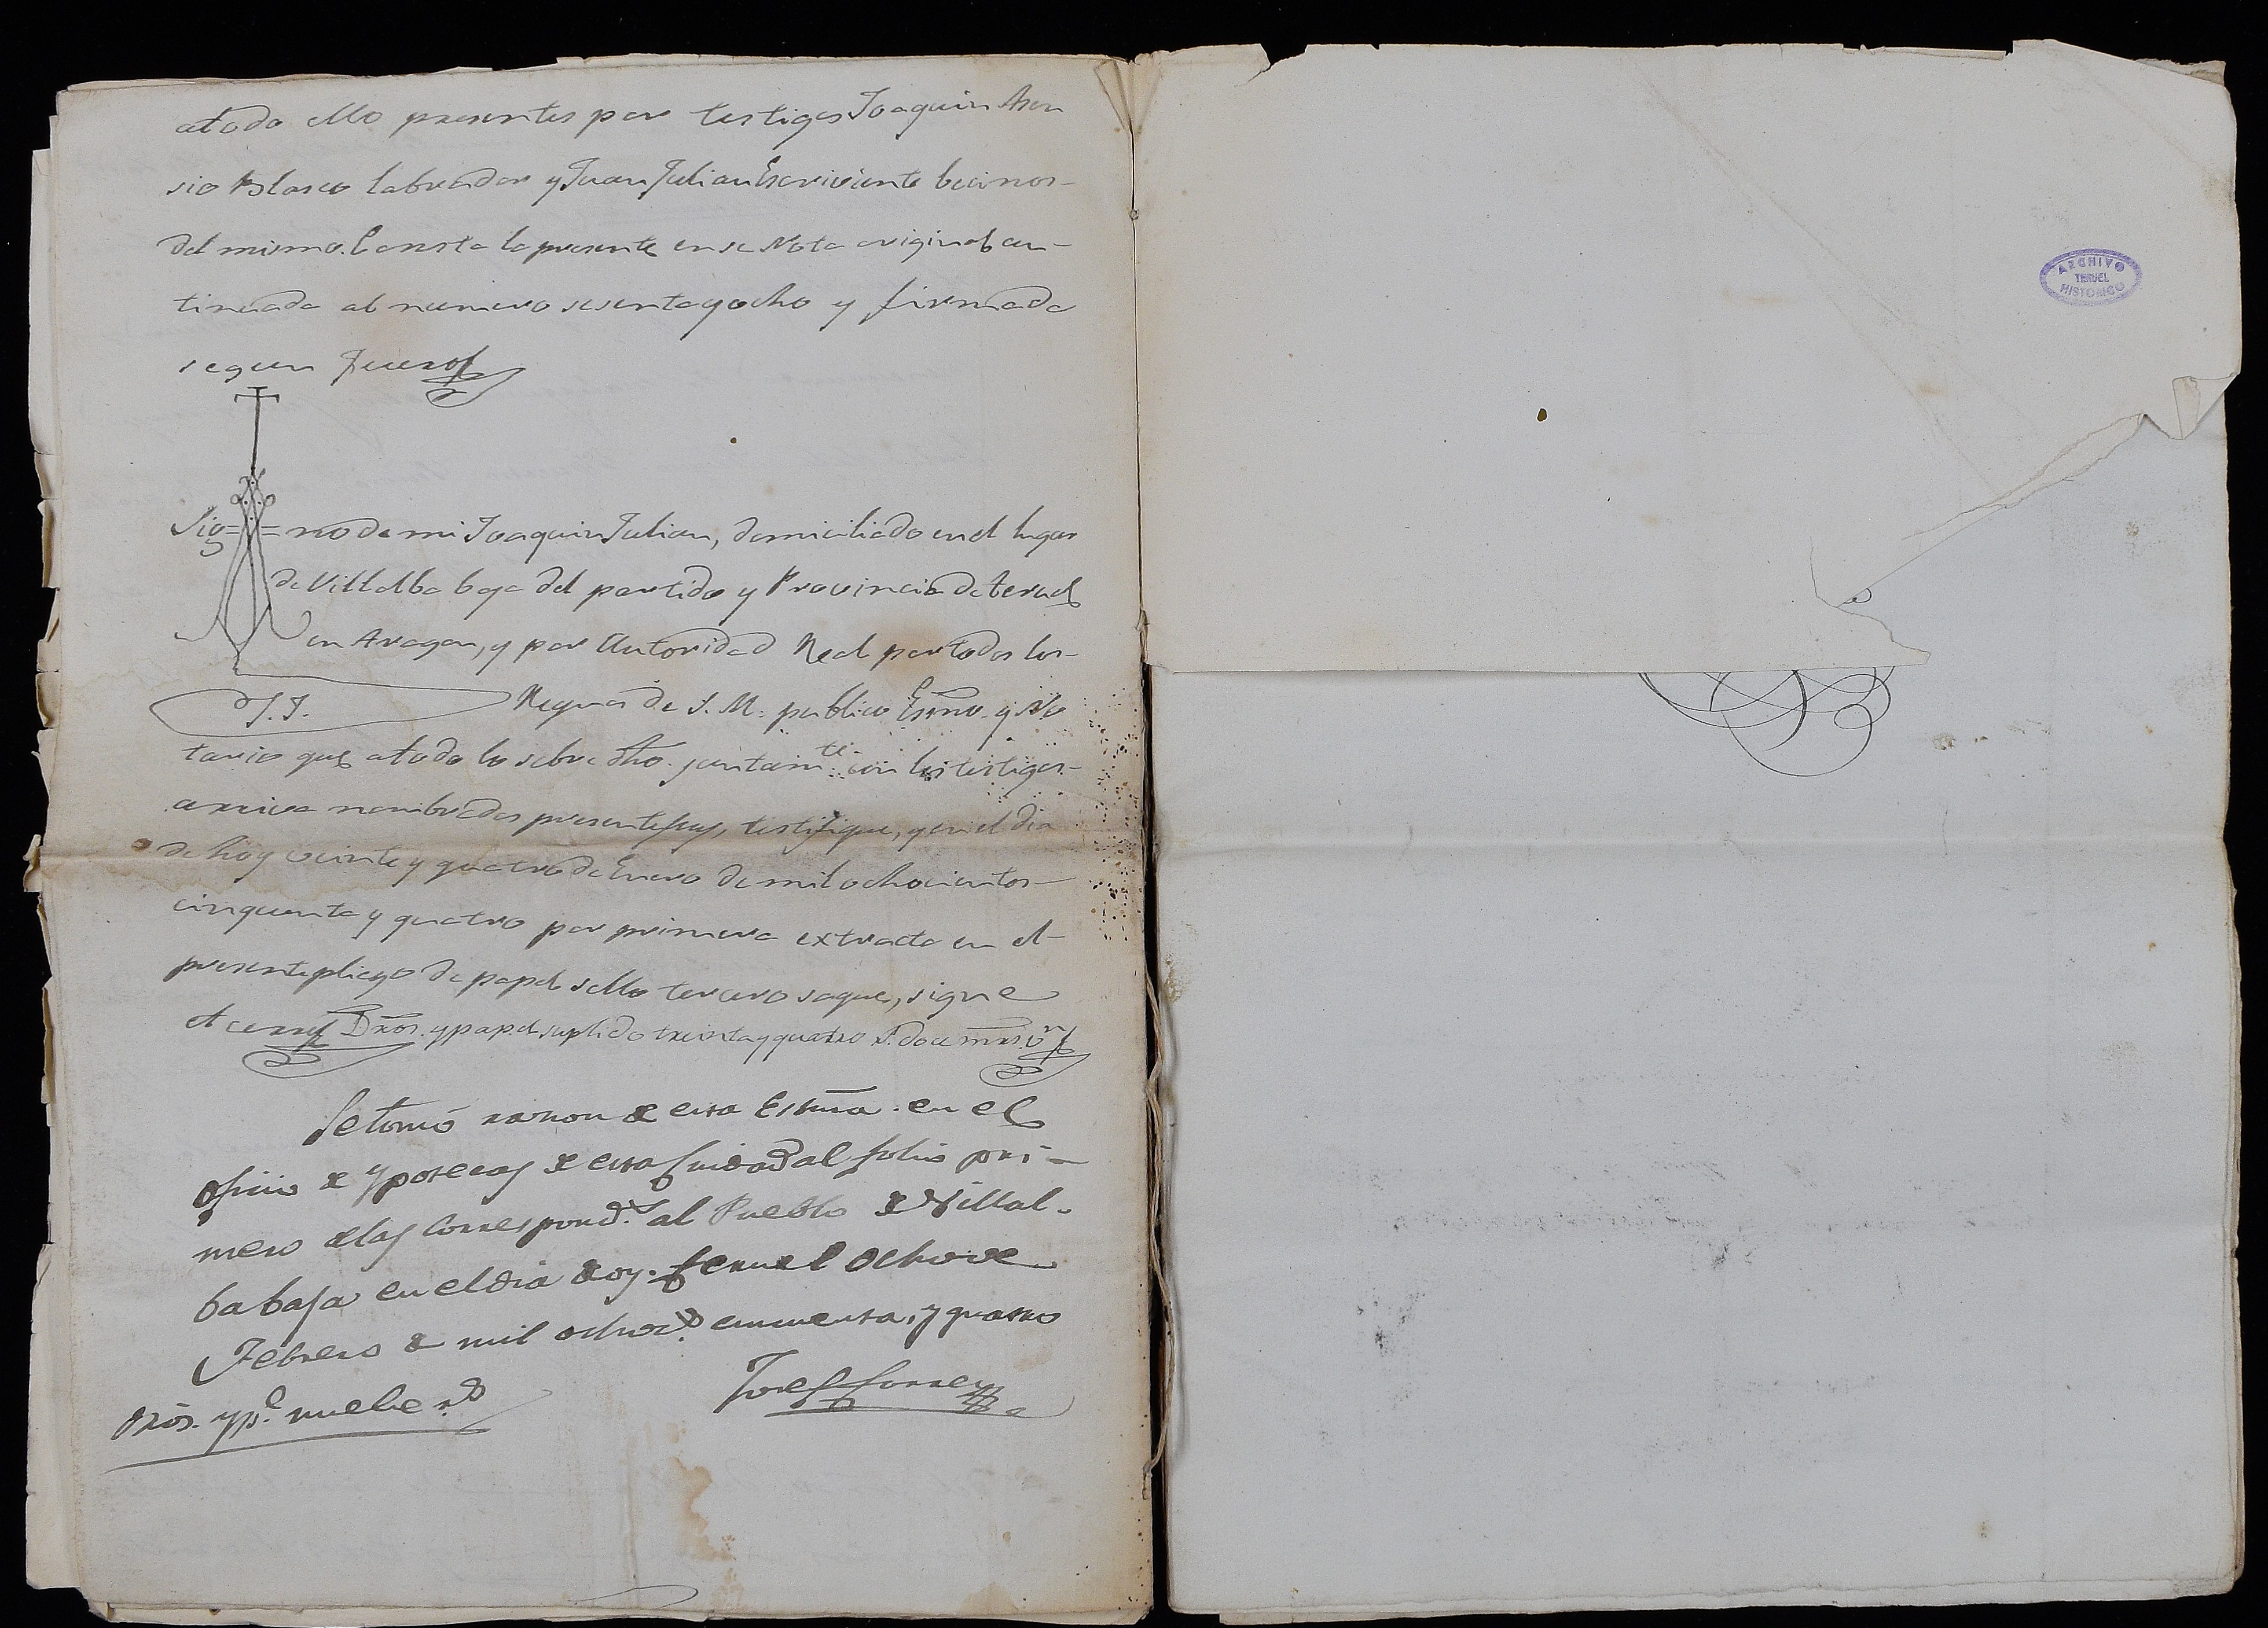 atodo ello presentes por testigos Joaquin Asen
sio Blasco labrador y Juan Julian Escriviente becinos
del mismo. Consta la presente en su Nota original con
tinuada al numero sesenta y ocho y firmada
segun fuero
Sig= =no de mi Joaquin Julian, domiciliado en el lugar
de Villalba baja del partido y Provincia de teruel
en Aragon, y por Autoridad Real por todos los
J. J.
Reynos de S. M. publico Esno. y No
tario que atodo lo sobre dho. juntamte. con los testigos
arriva nombrados presente fuy, testifique, y en el dia
de hoy veinte y quatro de Enero de mil ochocientos
cinquenta y quatro por primera extracta en el
presente pliego de papel sello tercero saque, signe
et cerre Dros. y papel suplido treinta y quatro r. doce mrs. vn
Se tomó razon de esta Esrra. en el
oficio de Ypotecas de esta Ciudad al folio pri-
mero de las correspond.s al Pueblo de Villal-
ba baja en el dia de oy. Teruel ocho de
Febrero de mil ochoc.s cincuenta, y quatro
Josef Torres
Dros. y p.l nuebe r.s
ARCHIVO
TERUEL
HISTORICO